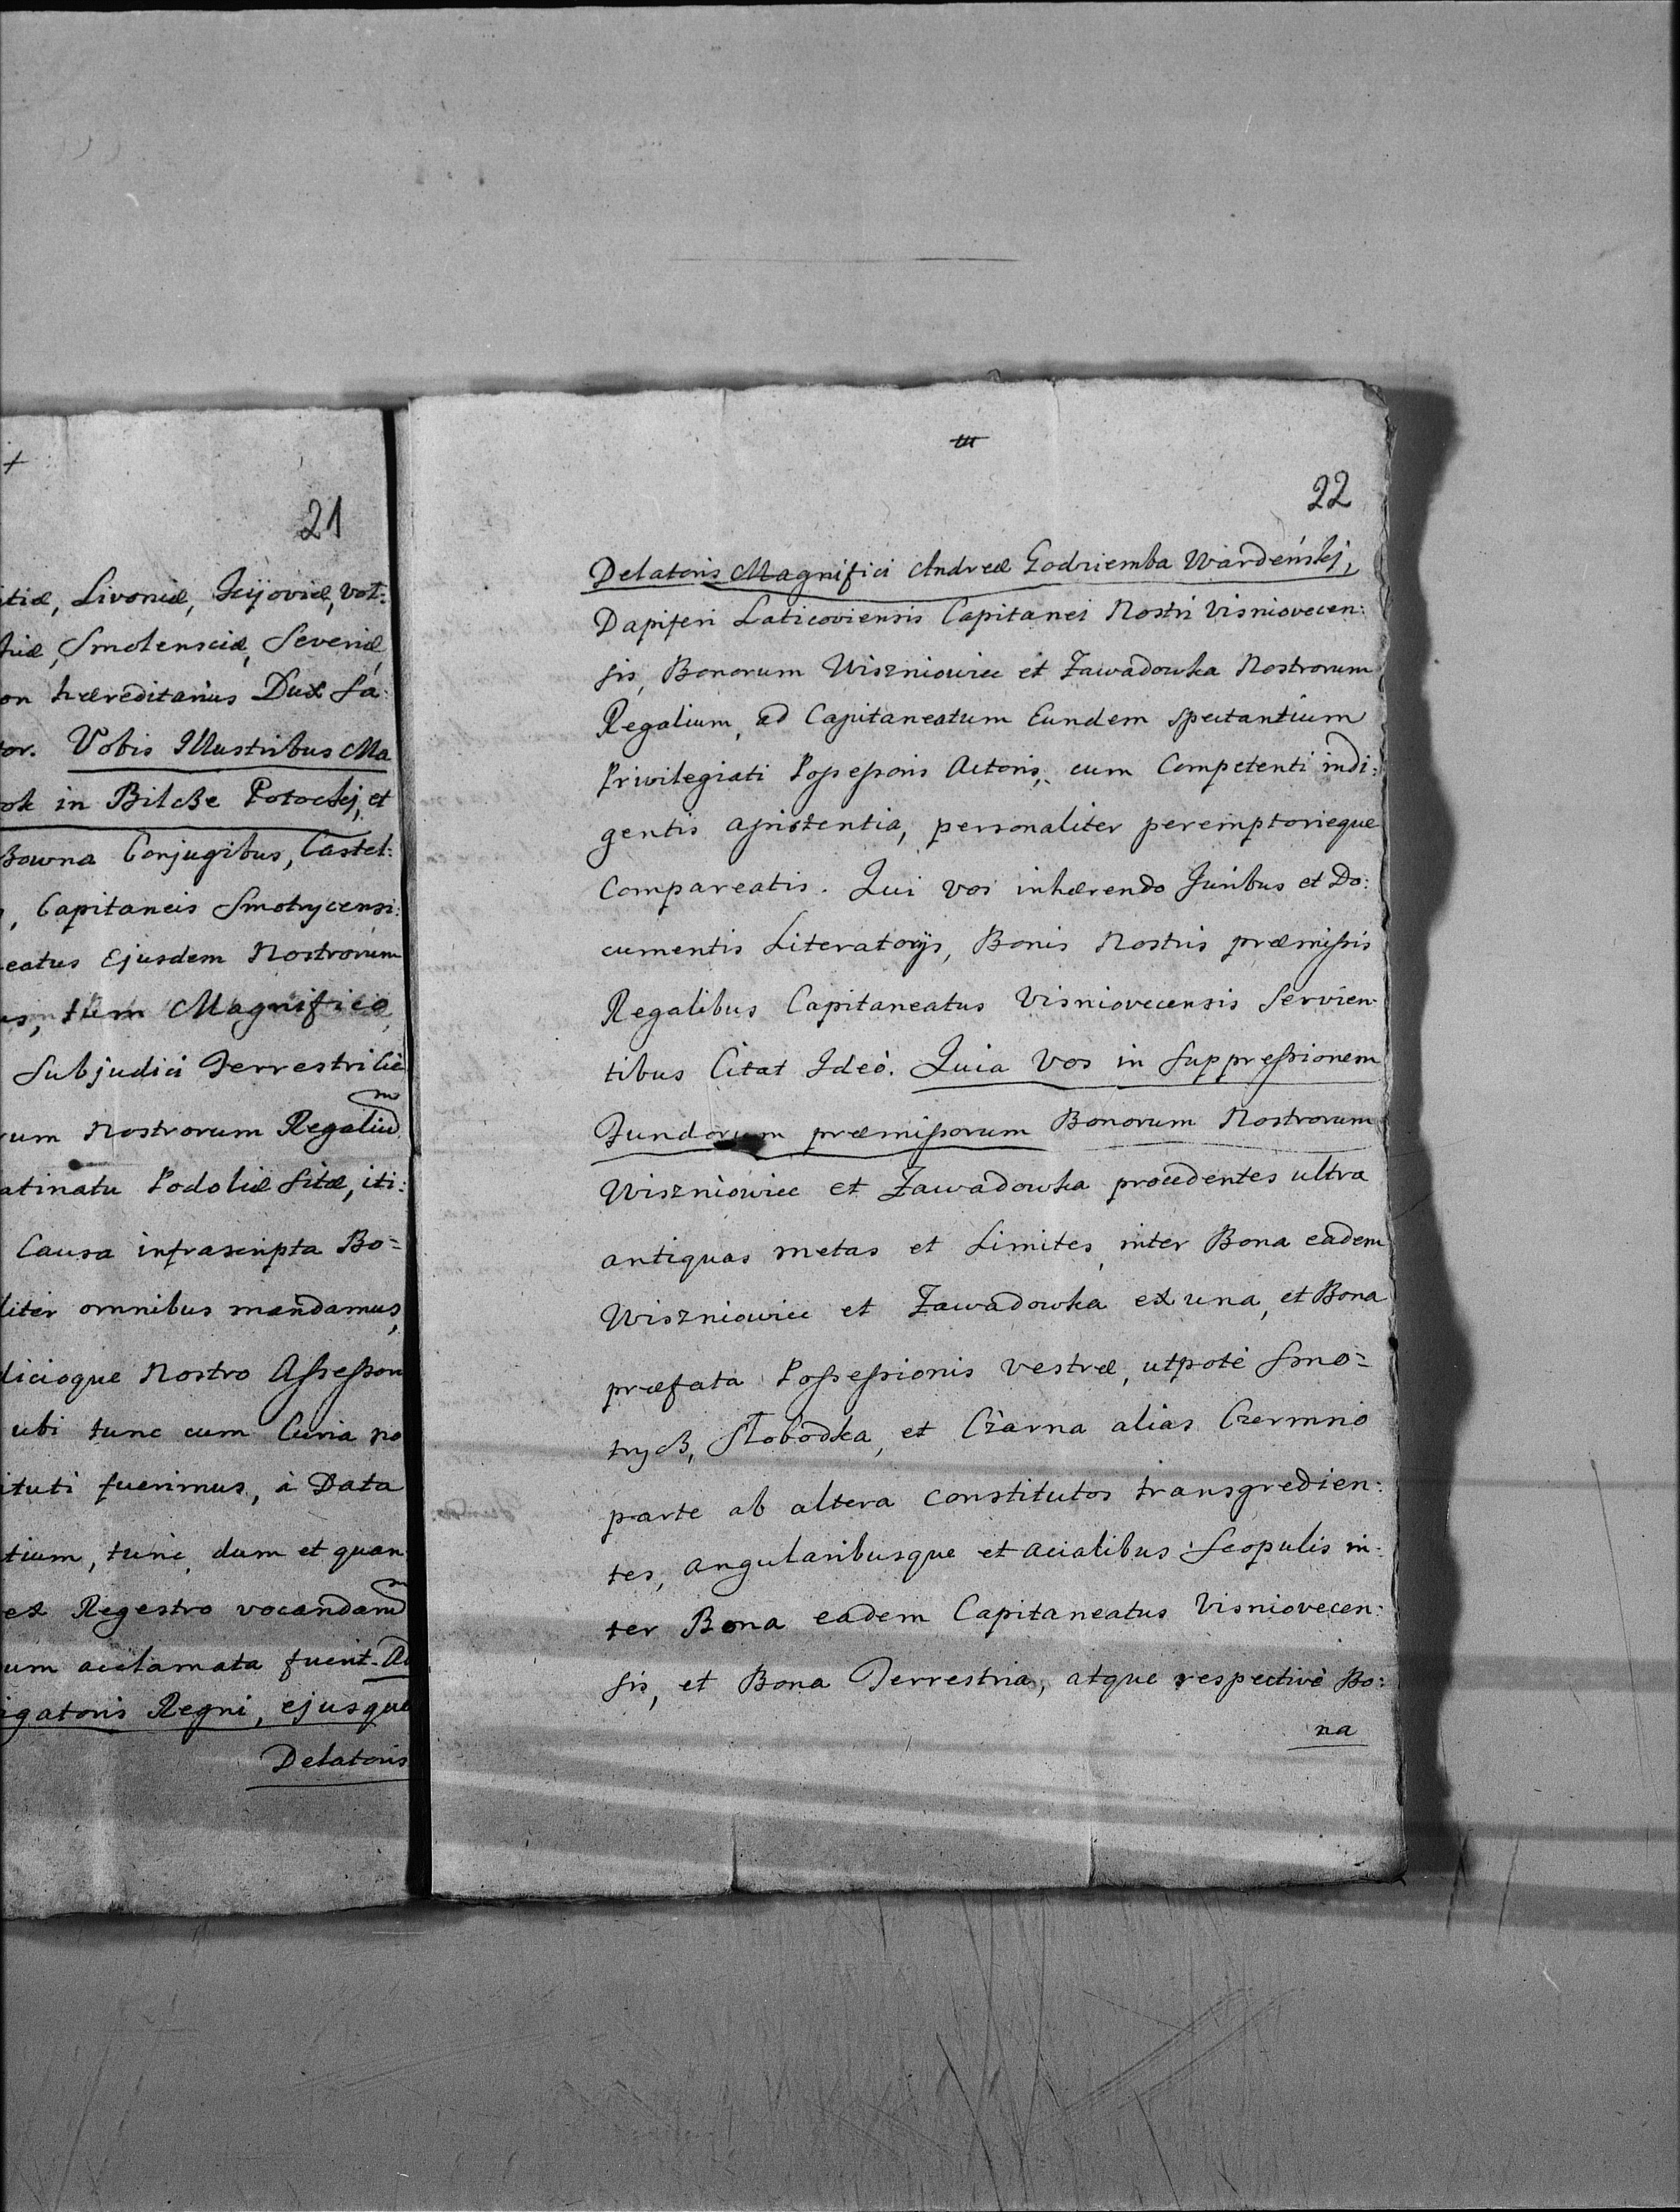 21
tiæ, Livoniæ, Kijoviæ, Vol:
hiæ, Smolensciæ, Severiæ,
on hæreditarius Dux Sa:
tor. Vobis Illustribus Ma
ok in Bilcze Potockj, et
Bowna Conjugibus, Castel:
, Capitaneis Smotrycensi:
eatus Ejusdem Nostrorum
us, tum Magnifico
Subjudici Terrestri
um Nostrorum Regalium
atinatu Podoliæ Sitæ, iti:
Causa infrascripta Bo=
liter omnibus mandamus,
dicioque Nostro Assessori
ubi tunc cum Curia no
ituti fuerimus, à Data
tium, tunc, dum et quan
ex Regestro vocandam
um acclamata fuerit. Ad
igatoris Regni, ejusque
Delatoris
22
Delatoris Magnifici Andreæ Godziemba Wardeńskj,
Dapiferi Laticoviensis Capitanei Nostri Visniovecen:
sis, Bonorum Wiszniowiec et Zawadowka Nostrorum
Regalium, ad Capitaneatum Eundem spectantium
Privilegiati Possessoris Actoris, cum Competenti indi:
gentis assistentia, personaliter peremptorieque
Compareatis. Qui vos inhærendo Juribus et Do:
cumentis Literatorijs, Bonis Nostris præmissis
Regalibus Capitaneatus Visniovecensis Servien
tibus Citat Ideò. Quia Vos in Suppressionem
Fundorum præmissorum Bonorum Nostrorum
Wiszniowiec et Zawadowka procedentes ultra
antiquas metas et Limites, inter Bona eadem
Wiszniowiec et Zawadowka ex una, et Bona
præfata Possessionis vestræ, utpotè Smo=
trycz, Słobodka, et Czarna alias Czermno
parte ab altera constitutos transgredien:
tes, angularibusque et acialibus Scopulis in:
ter Bona eadem Capitaneatus Visniovecen:
sis, et Bona Terrestria, atque respectivè Bo:
na